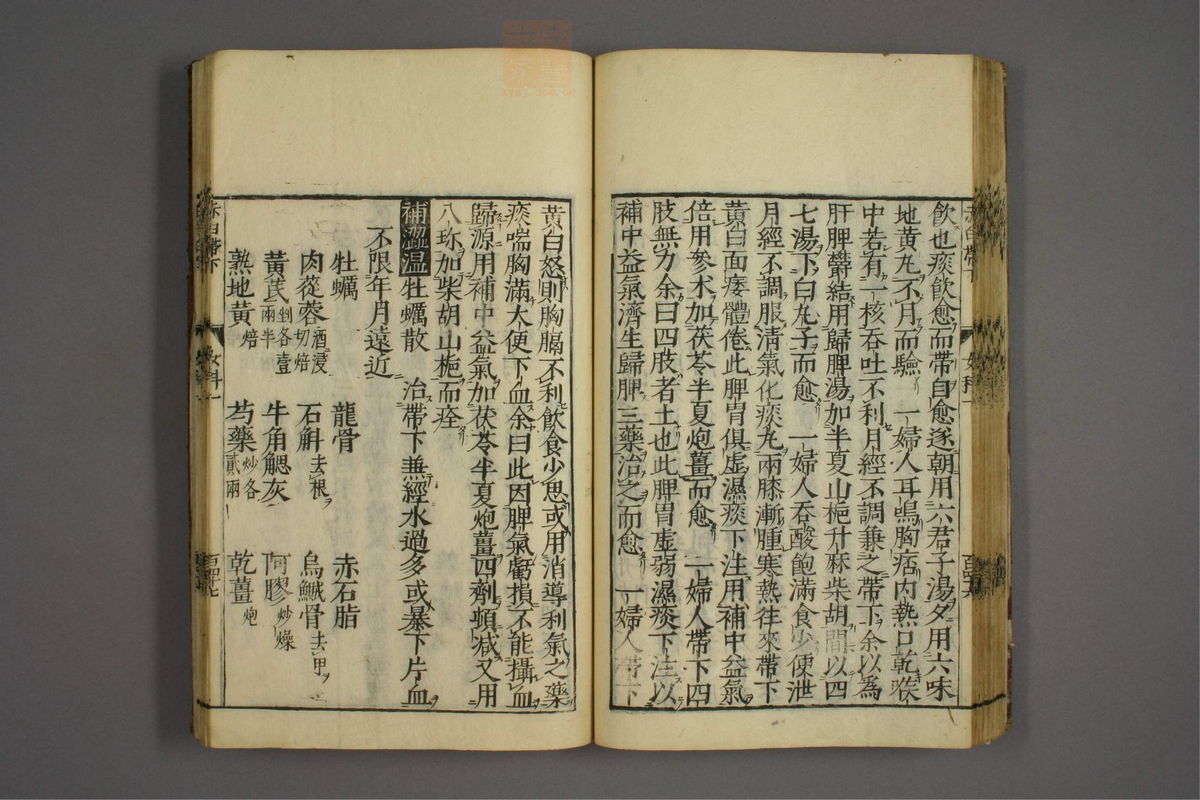 飲也痰飲愈而帶自愈遂朝用六君子湯夕用六味
地黃丸不月而驗　一婦人耳鳴胸痞內熱口乾喉
中若有一核吞吐不利月經不調兼之帶下余以為
肝脾欝結用歸脾湯加半夏山梔升麻柴胡間以四
七湯下白丸子而愈　一婦人吞酸飽滿食少便泄
月經不調服清氣化痰丸兩膝漸腫寒熱往來帶下
黃白面痿體倦此脾胃俱虛濕痰下注用補中益氣
倍用參朮加茯苓半夏炮薑而愈　一婦人帶下四
肢無力余曰四肢者土也此脾胃虛弱濕痰下注以
補中益氣濟生歸脾三藥治之而愈　一婦人帶下
黃白怒則胸膈不利飲食少思或用消導利氣之藥
痰喘胸滿大便下血余曰此因脾氣虧損不能攝血
歸源用補中益氣加茯苓半夏炮薑四劑頓減又用
八珍加柴胡山梔而痊
補澀温　牡蠣散　治帶下無經水過多或暴下片血
不限年月遠近
牡蠣　龍骨　赤石脂
肉蓯蓉酒浸切焙　石斛去根　烏鰂骨去甲
黃芪剉各壹兩半　牛角䚡灰　阿膠炒燥
熟地黃焙　芍藥炒各貳兩　乾薑炮
赤白帶下
女科一